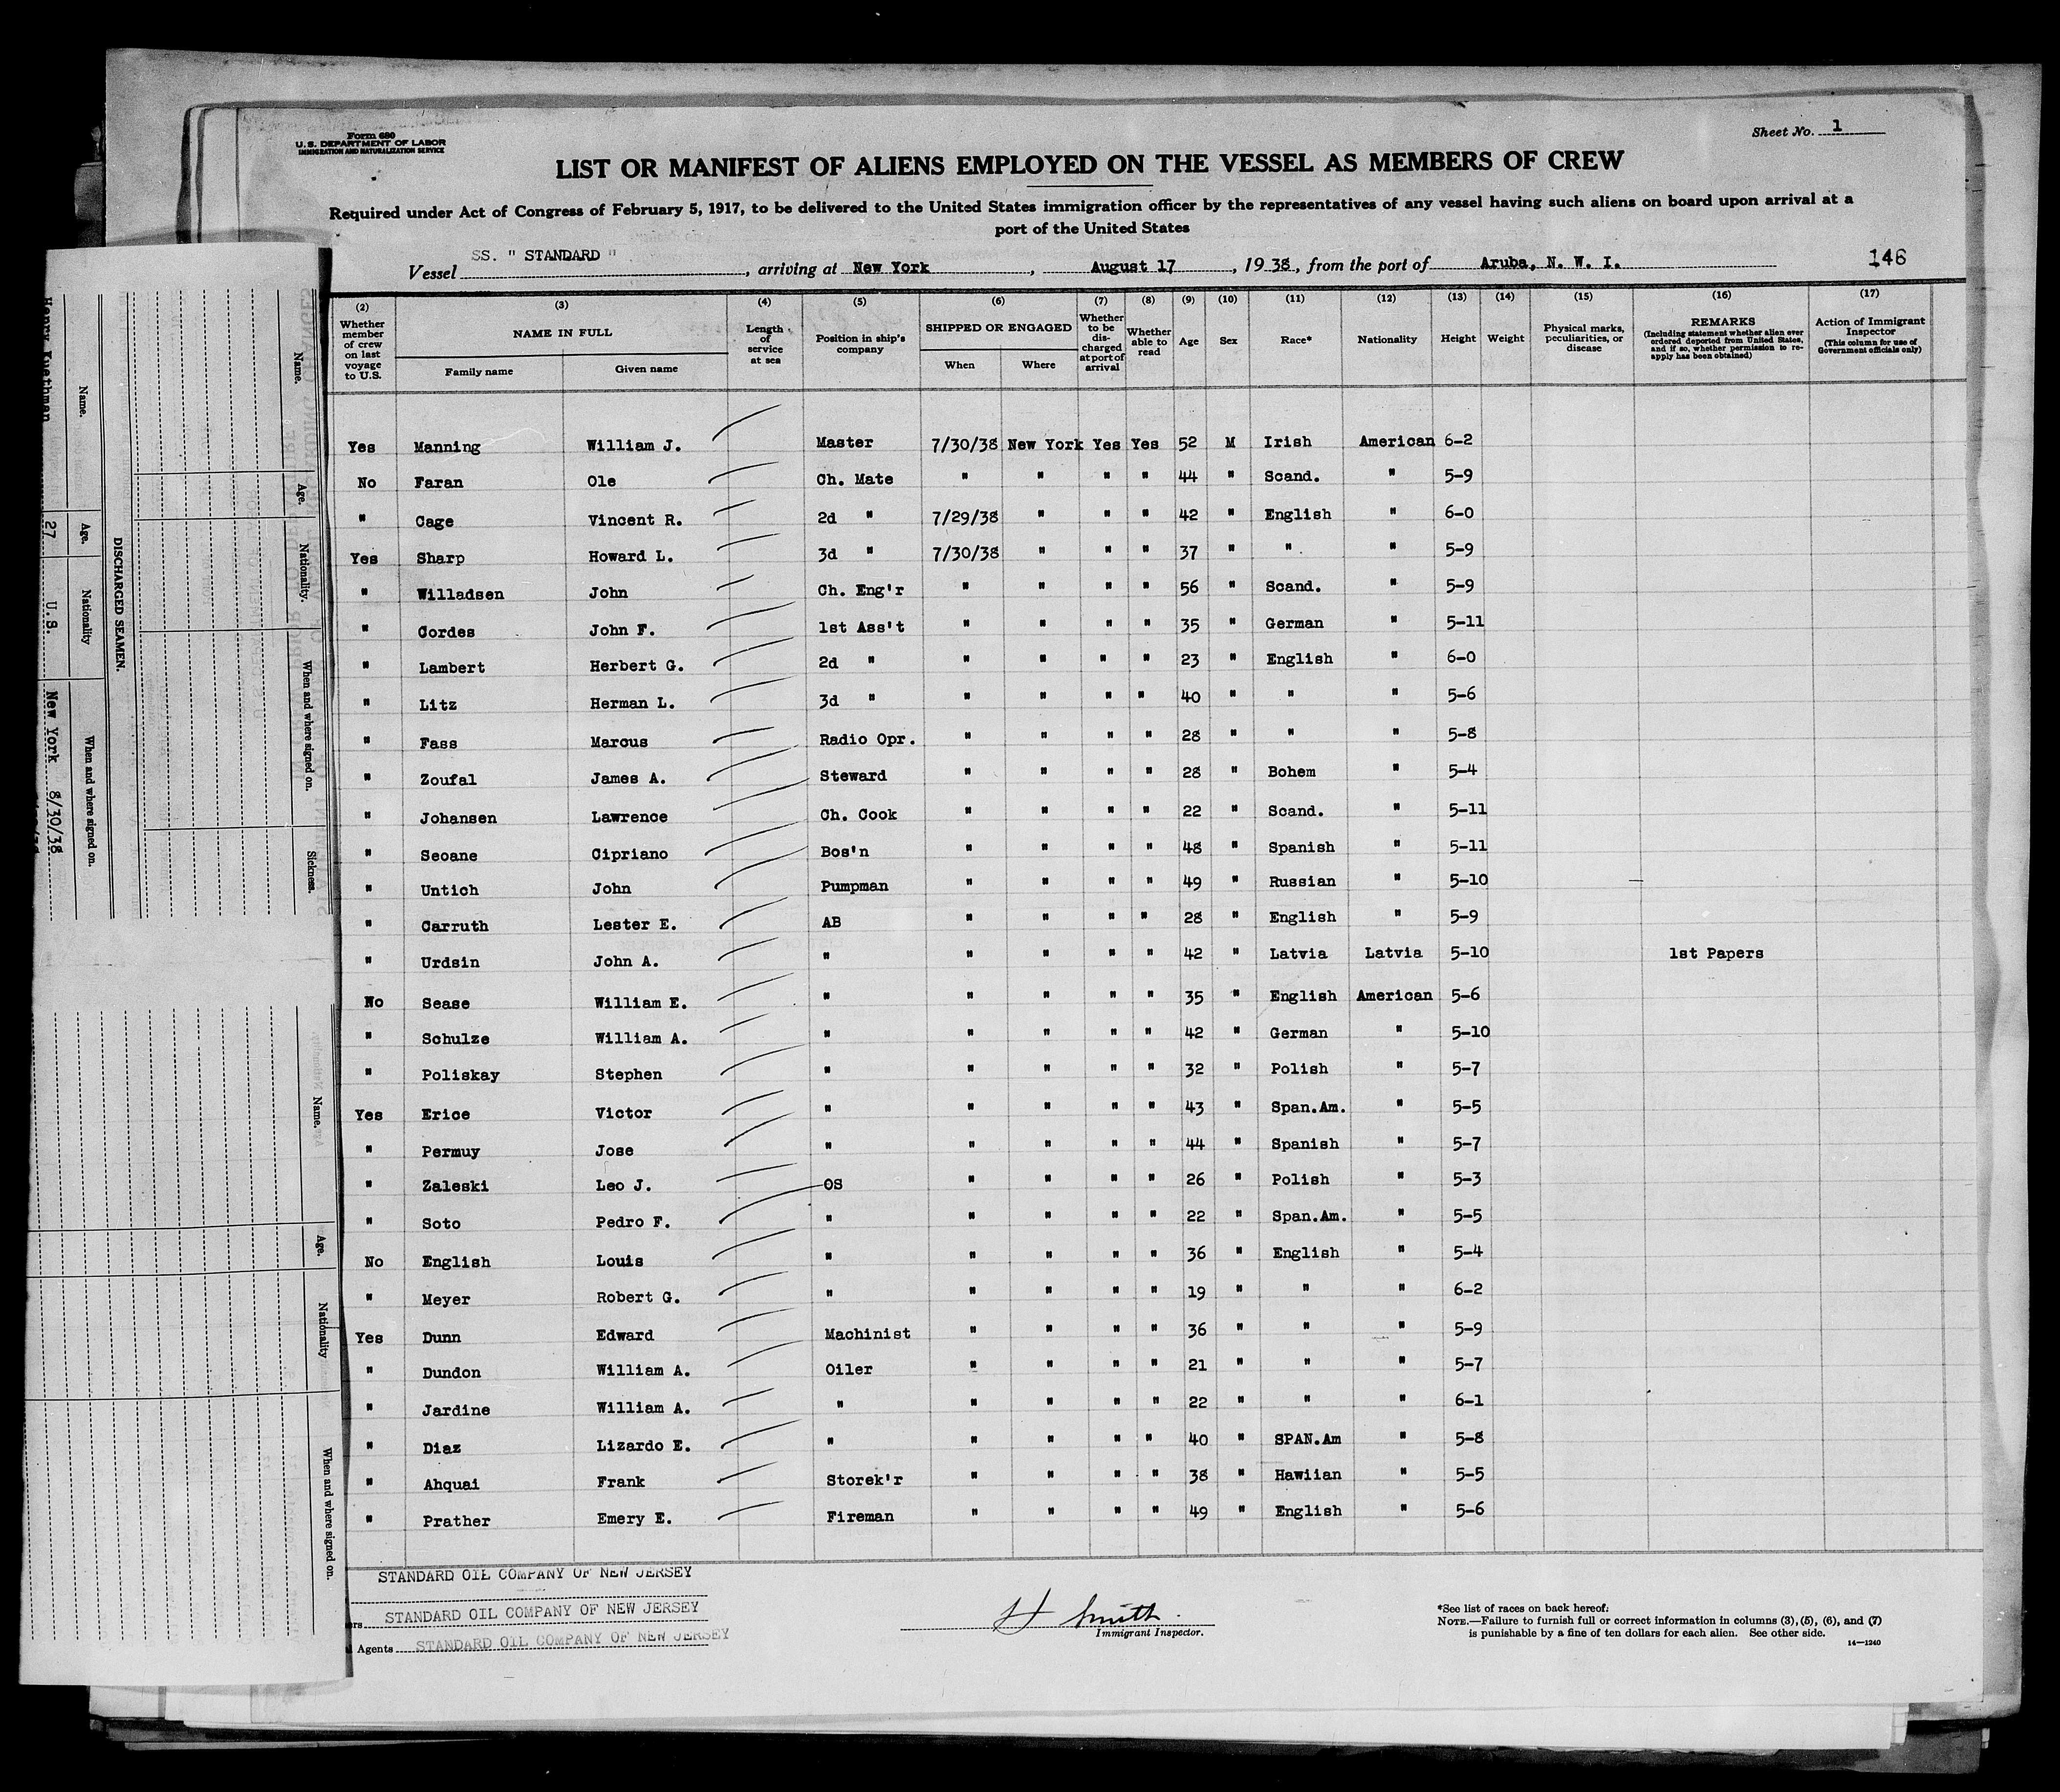 Form 680
U. S. DEPARTMENT OF LABOR
IMMIGRATION AND NATURALIZATION SERVICE
Sheet No. 1
LIST OR MANIFEST OF ALIENS EMPLOYED ON THE VESSEL AS MEMBERS OF CREW
Required under Act of Congress of February 5, 1917, to be delivered to the United States immigration officer by the representatives of any vessel having such aliens on board upon arrival at a
port of the United States
Vessel SS. " STANDARD " , arriving at New York , August 17 , 19 38 , from the port of Aruba, N. W. I. 146
(2) (3) (4) (5) (6) (7) (8) (9) (10) (11) (12) (13) (14) (15) (16) (17)
Whether member of crew on last voyage to U.S.
NAME IN FULL
Family name Given name
Length of service at sea
Position in ship's company
SHIPPED OR ENGAGED
When Where
Whether to be discharged at port of arrival
Whether able to read
Age
Sex
Race*
Nationality
Height
Weight
Physical marks, peculiarities, or disease
REMARKS
(Including statement whether alien ever ordered deported from United States, and if so, whether permission to reapply has been obtained)
Action of Immigrant Inspector
(This column for use of Government officials only)
Yes Manning William J. Master 7/30/38 New York Yes Yes 52 M Irish American 6-2
No Faran Ole Ch. Mate " " " " 44 " Scand. " 5-9
" Cage Vincent R. 2d " 7/29/38 " " " 42 " English " 6-0
Yes Sharp Howard L. 3d " 7/30/38 " " " 37 " " " 5-9
" Willadsen John Ch. Eng'r " " " " 56 " Scand. " 5-9
" Cordes John F. 1st Ass't " " " " 35 " German " 5-11
" Lambert Herbert G. 2d " " " " " 23 " English " 6-0
" Litz Herman L. 3d " " " " " 40 " " " 5-6
" Fass Marcus Radio Opr. " " " " 28 " " " 5-8
" Zoufal James A. Steward " " " " 28 " Bohem " 5-4
" Johansen Lawrence Ch. Cook " " " " 22 " Scand. " 5-11
" Seoane Cipriano Bos'n " " " " 48 " Spanish " 5-11
" Untich John Pumpman " " " " 49 " Russian " 5-10
" Carruth Lester E. AB " " " " 28 " English " 5-9
" Urdsin John A. " " " " " 42 " Latvia Latvia 5-10 1st Papers
No Sease William E. " " " " " 35 " English American 5-6
" Schulze William A. " " " " " 42 " German " 5-10
" Poliskay Stephen " " " " " 32 " Polish " 5-7
Yes Erice Victor " " " " " 43 " Span.Am. " 5-5
" Permuy Jose " " " " " 44 " Spanish " 5-7
" Zaleski Leo J. OS " " " " 26 " Polish " 5-3
" Soto Pedro F. " " " " " 22 " Span.Am. " 5-5
No English Louis " " " " " 36 " English " 5-4
" Meyer Robert G. " " " " " 19 " " " 6-2
Yes Dunn Edward Machinist " " " " 36 " " " 5-9
" Dundon William A. Oiler " " " " 21 " " " 5-7
" Jardine William A. " " " " " 22 " " " 6-1
" Diaz Lizardo E. " " " " " 40 " SPAN.Am " 5-8
" Ahquai Frank Storek'r " " " " 38 " Hawiian " 5-5
" Prather Emery E. Fireman " " " " 49 " English " 5-6
STANDARD OIL COMPANY OF NEW JERSEY
STANDARD OIL COMPANY OF NEW JERSEY
Agents STANDARD OIL COMPANY OF NEW JERSEY
H Smith
Immigrant Inspector.
*See list of races on back hereof.
NOTE.—Failure to furnish full or correct information in columns (3), (5), (6), and (7)
is punishable by a fine of ten dollars for each alien. See other side.
14—1240
Name. Age. Nationality. When and where signed on. Sickness.
DISCHARGED SEAMEN.
Name. Age. Nationality When and where signed on.
27 U.S. New York 8/30/38
Name. Age. Nationality When and where signed on.